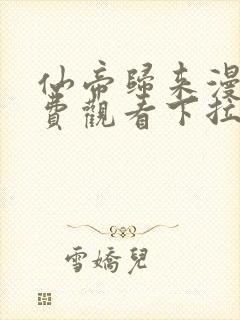 仙帝歸來漫
費觀看下拉
雪嬌兒